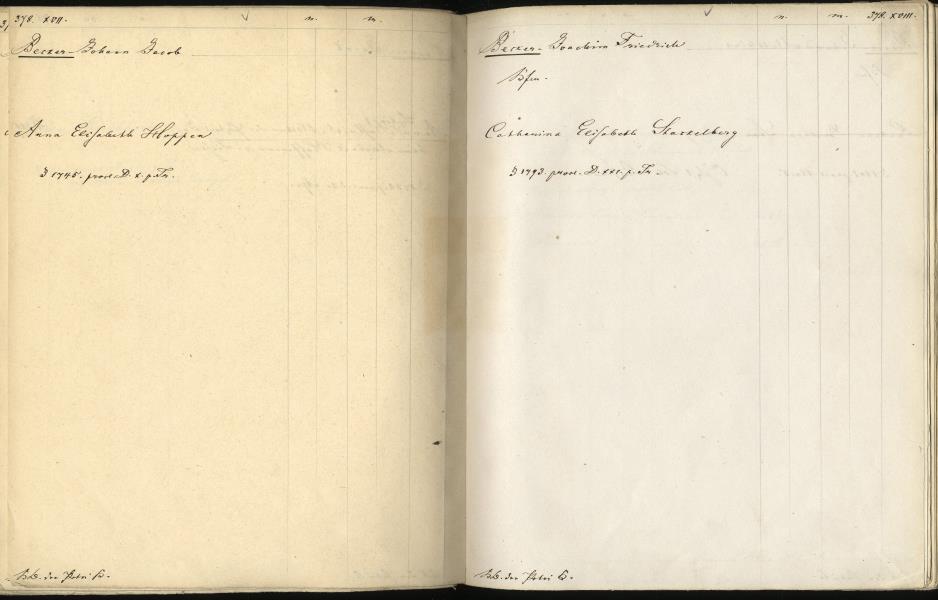 378. XVII. n. m.
Becker. Johann Jacob
Anna Elisabeth Hoppen
1745. procl. D. x. p. Tr.
KB. der Petri K.
n. m. 378. XVIII.
Becker. Joachim Friedrich
Catharina Elisabeth Stackelberg
1793. procl. D. xxi. p. Tr.
KB. der Petri K.